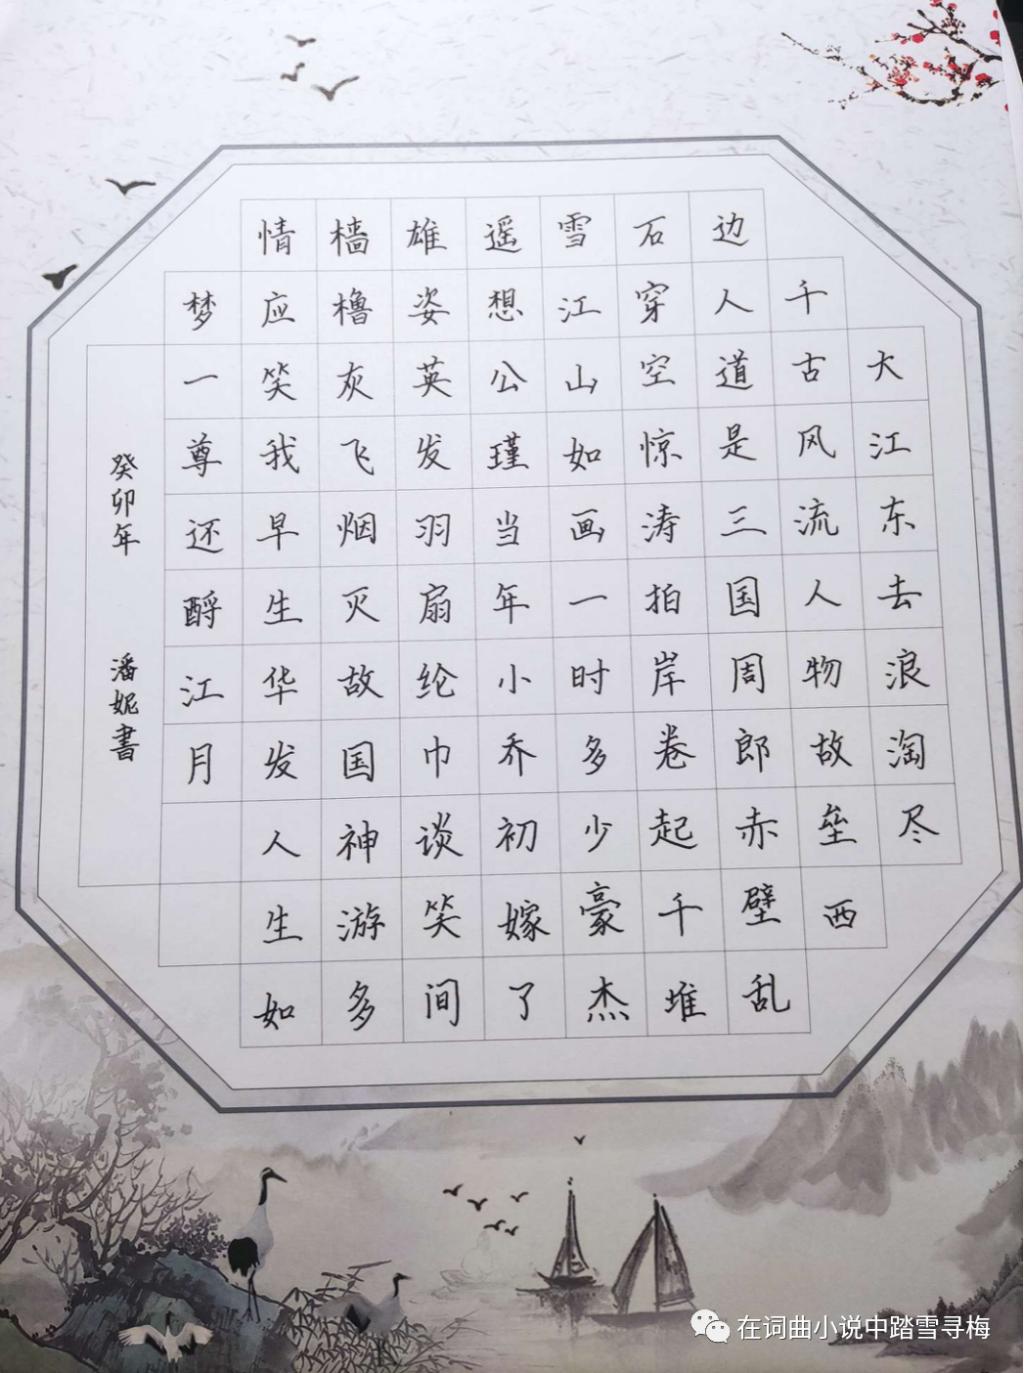 大江东去浪淘尽
千古风流人物故垒西
边人道是三国周郎赤壁乱
石穿空惊涛拍岸卷起千堆
雪江山如画一时多少豪杰
遥想公瑾当年小乔初嫁了
雄姿英发羽扇纶巾谈笑间
樯橹灰飞烟灭故国神游多
情应笑我早生华发人生如
梦一尊还酹江月
癸卯年 潘妮書
在词曲小说中踏雪寻梅